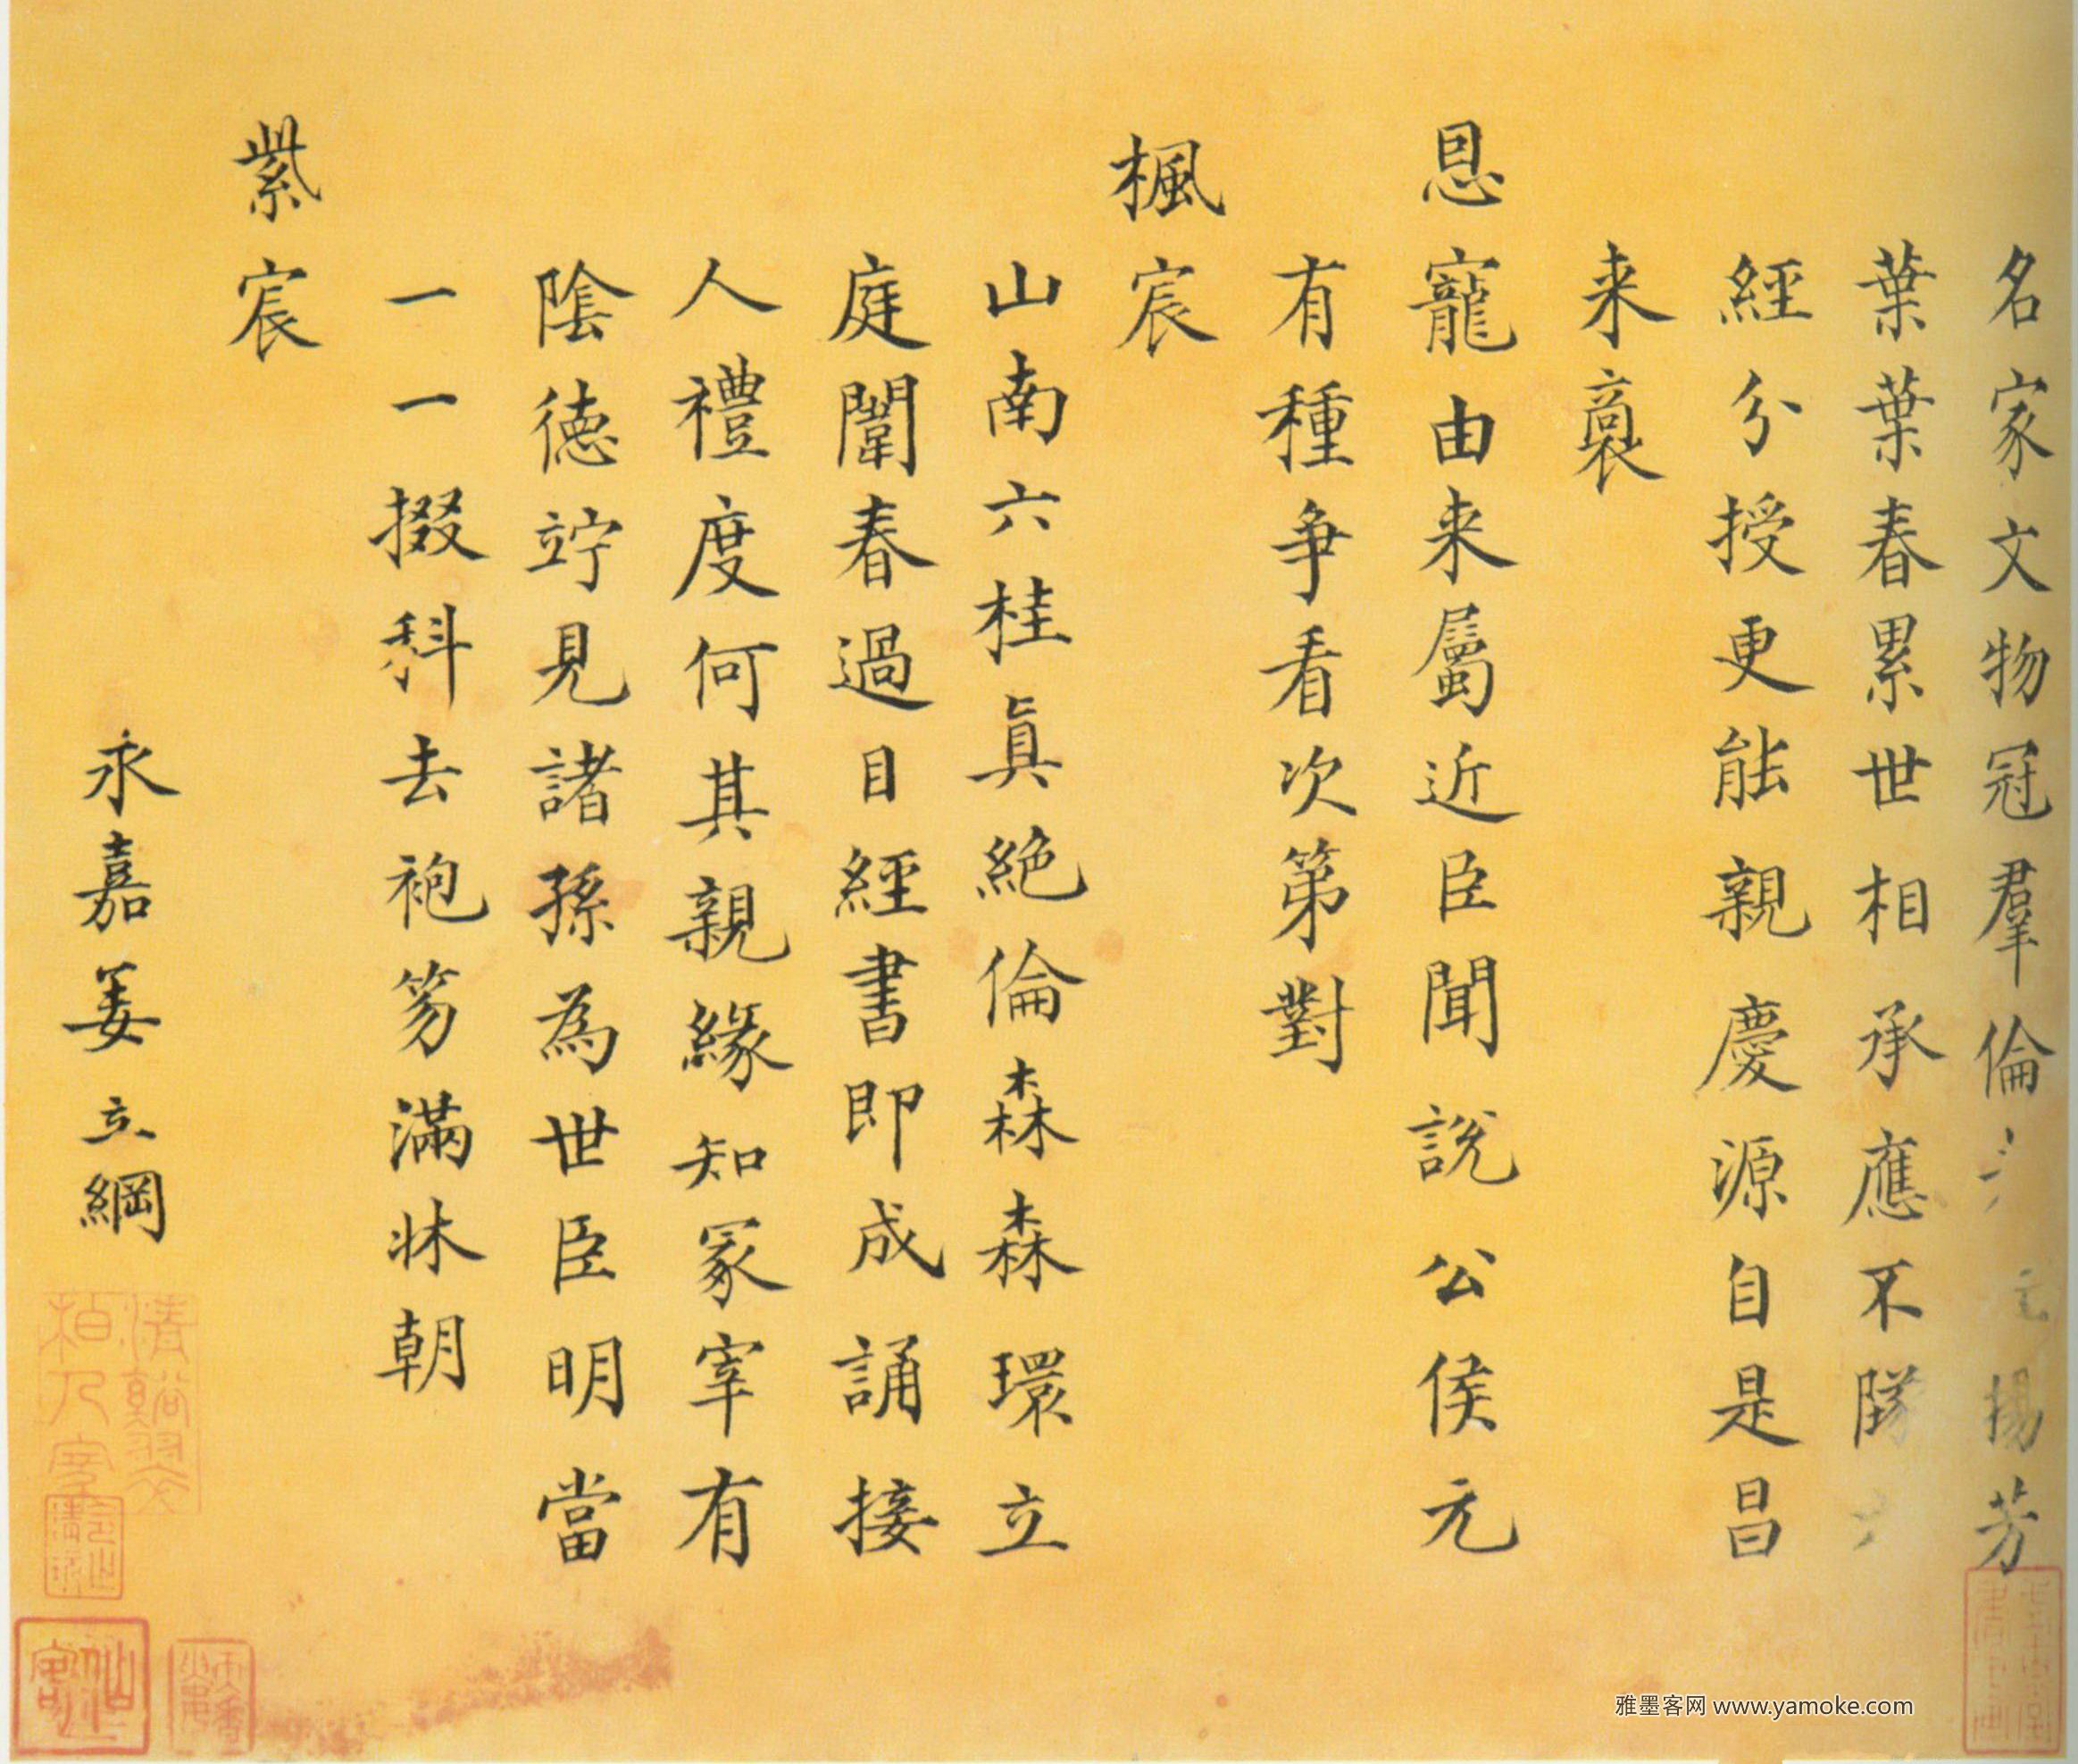 名家文物冠羣倫 揚芳
葉葉春累世相承應不隊
經分授更能親慶源自是昌
来裔
恩寵由来屬近臣聞說公侯元
有種争看次第對
楓宸
山南六桂真絶倫森森環立
庭闈春過目經書即成誦接
人禮度何其親緣知冢宰有
陰徳竚見諸孫為世臣明當
一一掇科去袍笏滿牀朝
紫宸
永嘉姜立綱
雅墨客网 www.yamoke.com